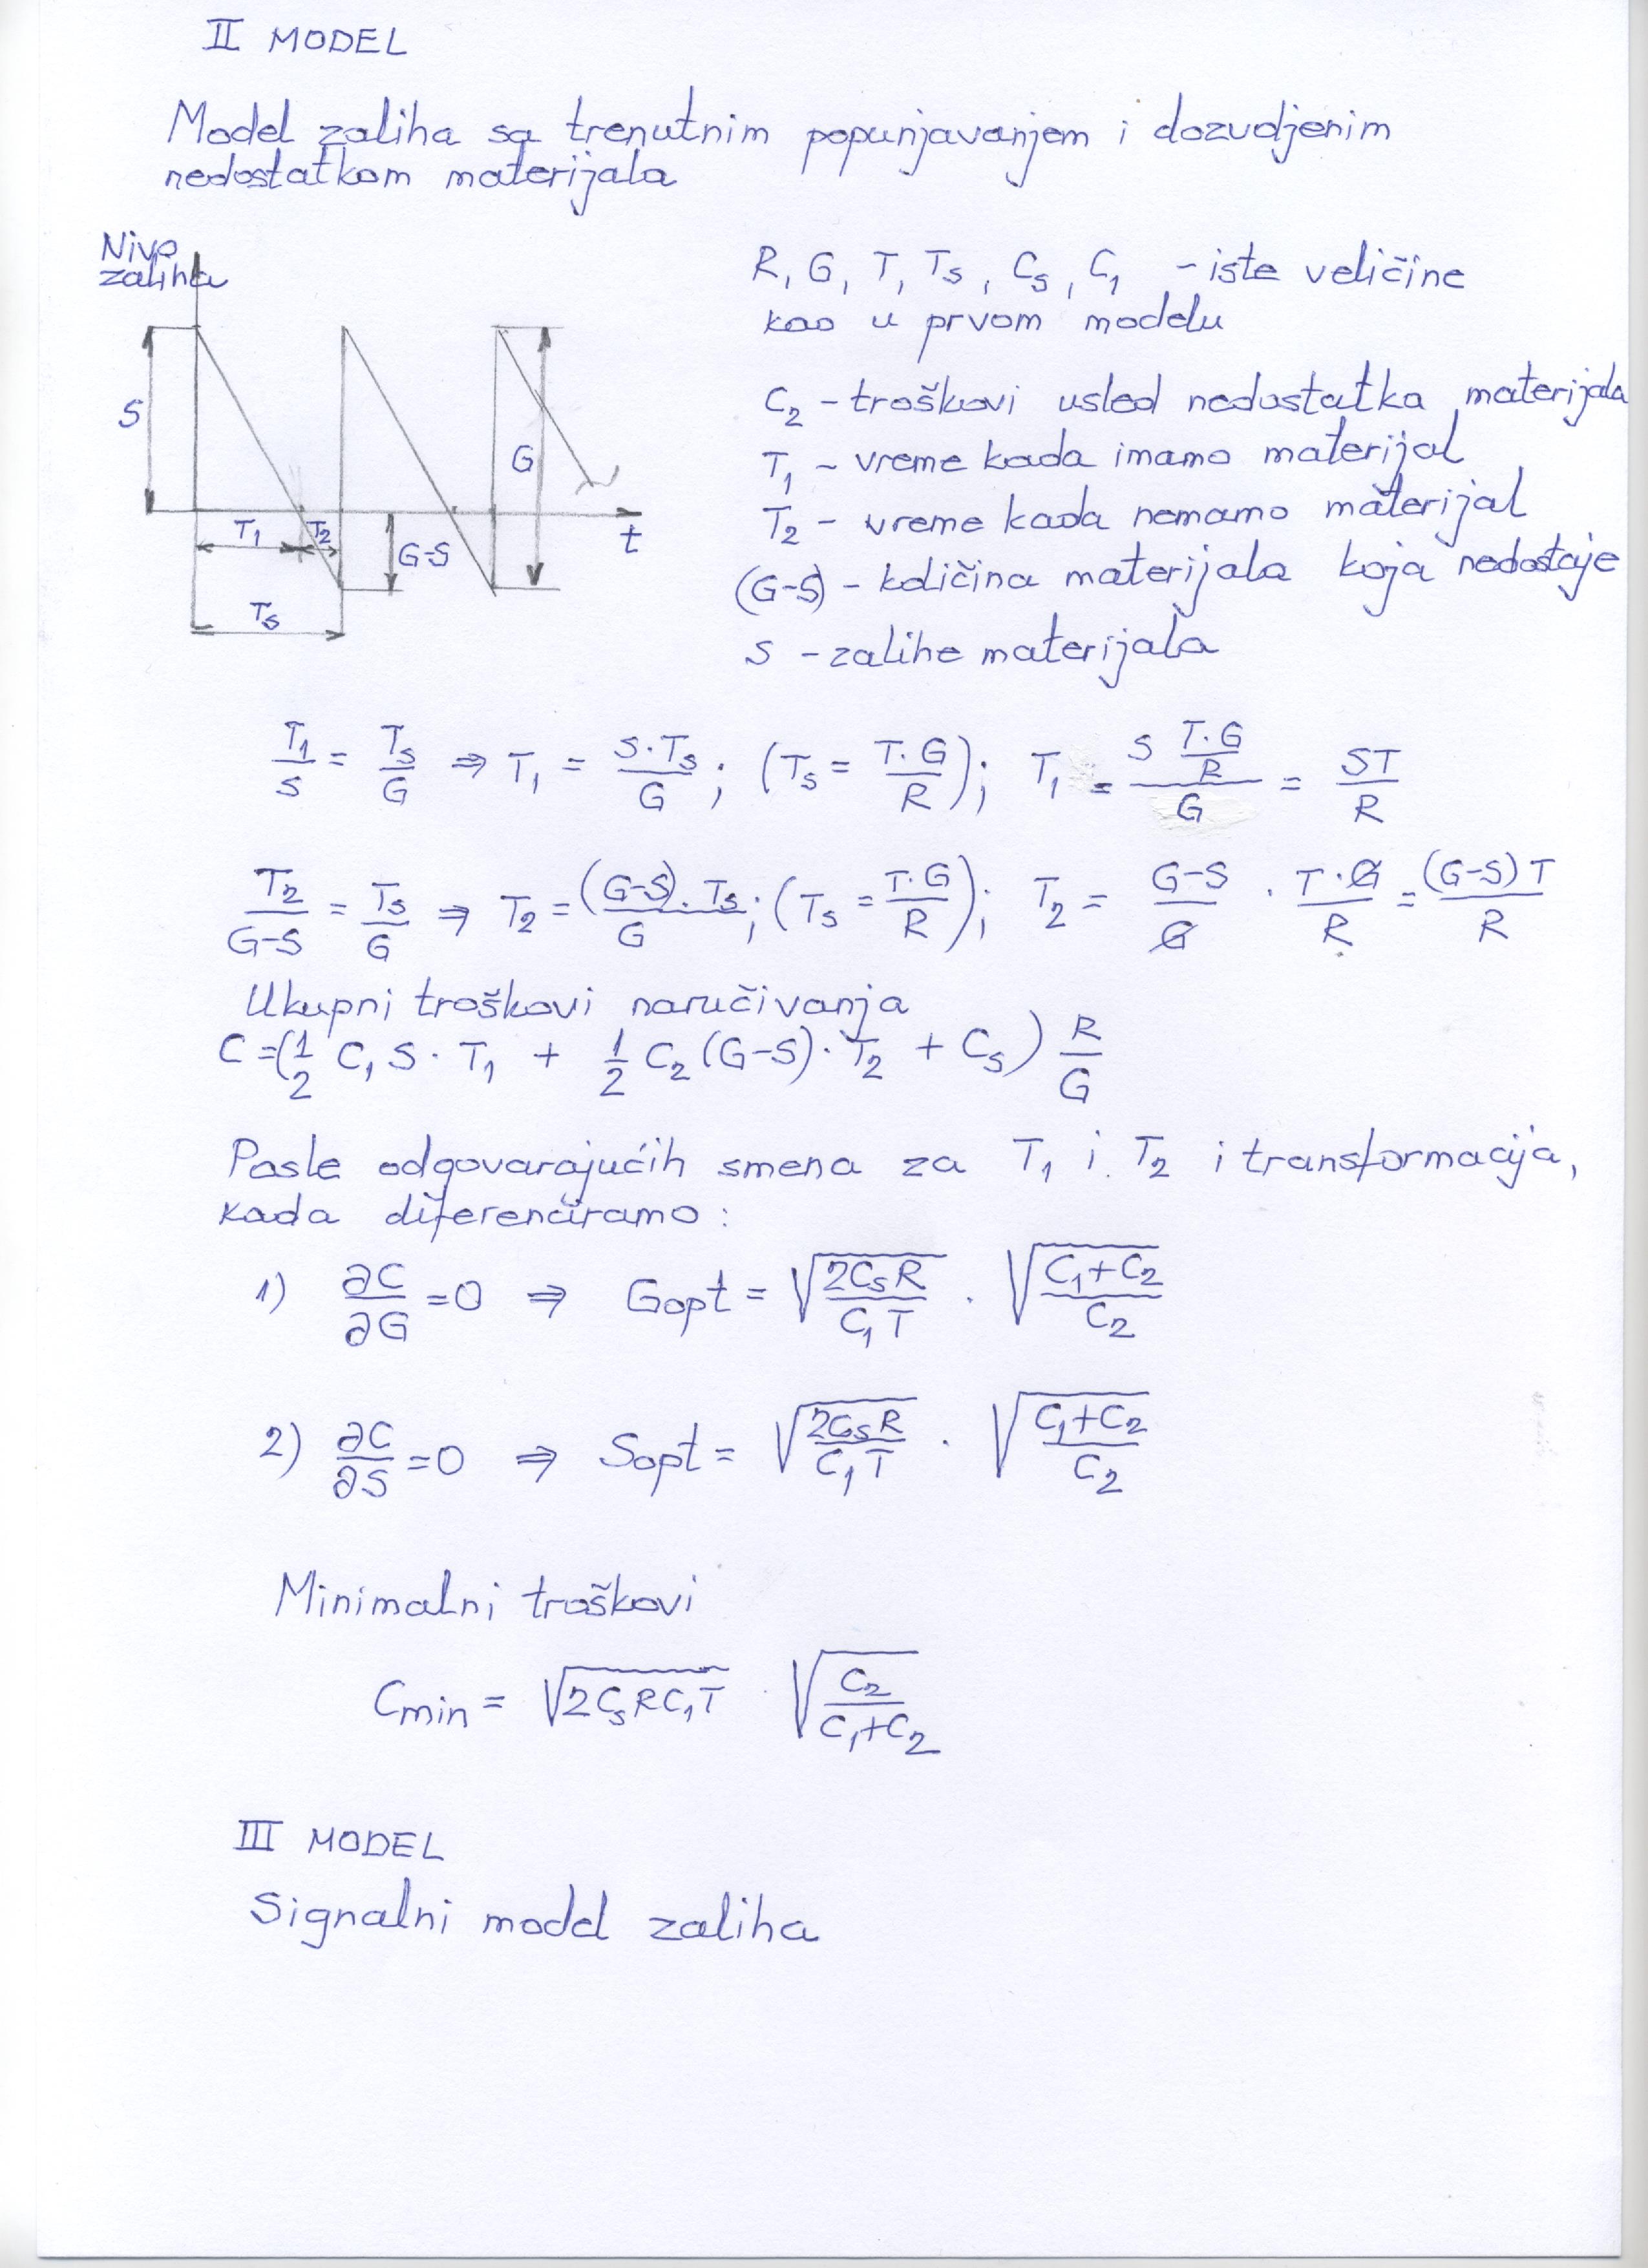 II MODEL
Model zaliha sa trenutnim popunjavanjem i dozvoljenim
nedostatkom materijala
Nivo
zaliha
S
T₁
T₂
Ts
G-S
G
t
R, G, T, Ts, Cs, C₁ - iste veličine
kao u prvom modelu
C₂ - troškovi usled nedostatka materijala
T₁ - vreme kada imamo materijal
T₂ - vreme kada nemamo materijal
(G-S) - količina materijala koja nedostaje
S - zalihe materijala
T₁/S = Ts/G ⇒ T₁ = S·Ts/G ; (Ts = T·G/R); T₁ = (S T·G/R)/G = ST/R
T₂/(G-S) = Ts/G ⇒ T₂ = (G-S)·Ts/G ; (Ts = T·G/R); T₂ = (G-S)/G · T·G/R = (G-S)T/R
Ukupni troškovi naručivanja
C = (1/2 C₁ S · T₁ + 1/2 C₂ (G-S) · T₂ + Cs) R/G
Posle odgovarajućih smena za T₁ i T₂ i transformacija,
kada diferenciramo:
1) ∂C/∂G = 0 ⇒ Gopt = √(2CsR/C₁T) · √((C₁+C₂)/C₂)
2) ∂C/∂S = 0 ⇒ Sopt = √(2CsR/C₁T) · √((C₁+C₂)/C₂)
Minimalni troškovi
Cmin = √(2CsRC₁T) · √(C₂/(C₁+C₂))
III MODEL
Signalni model zaliha